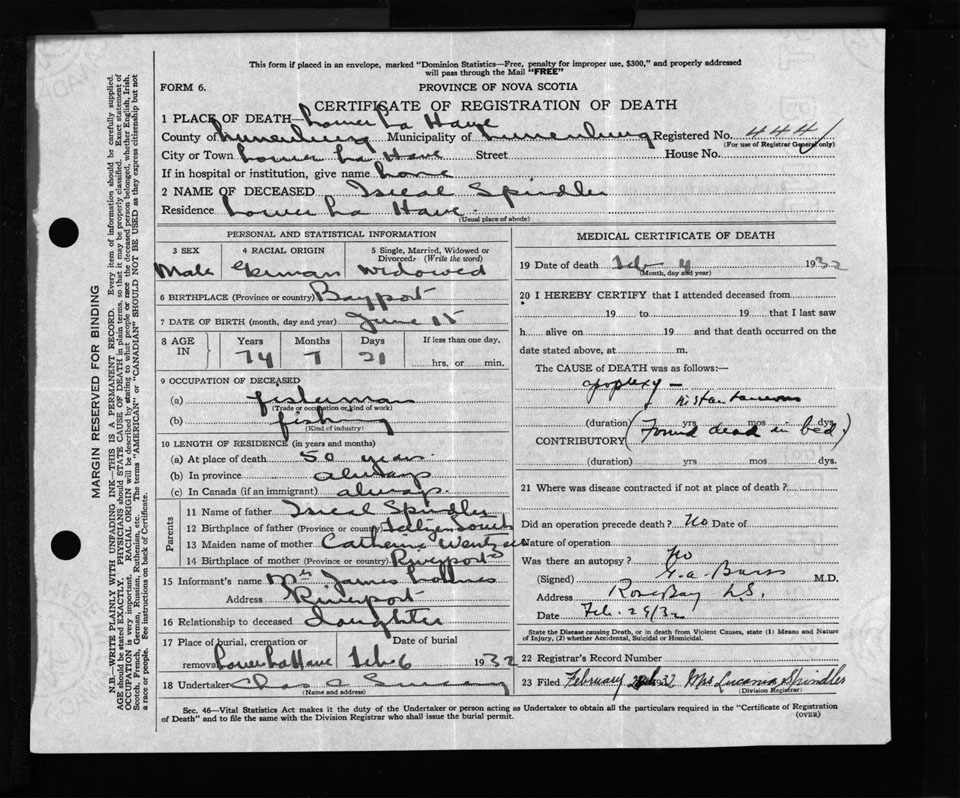 This form if placed in an envelope, marked "Dominion Statistics—Free, penalty for improper use, $300," and properly addressed
will pass through the Mail "FREE"
FORM 6.
PROVINCE OF NOVA SCOTIA
CERTIFICATE OF REGISTRATION OF DEATH
1 PLACE OF DEATH—Lower La Have
County of Lunenburg Municipality of Lunenburg Registered No. 4441
(For use of Registrar General only)
City or Town Lower La Have Street House No.
If in hospital or institution, give name home
2 NAME OF DECEASED Isreal Spindler
Residence Lower La Have
(Usual place of abode)
PERSONAL AND STATISTICAL INFORMATION
3 SEX
4 RACIAL ORIGIN
5 Single, Married, Widowed or Divorced? (Write the word)
Male German Widowed
6 BIRTHPLACE (Province or country) Bayport
7 DATE OF BIRTH (month, day and year) June 15
8 AGE IN
Years Months Days If less than one day,
74 7 21 hrs. or min.
9 OCCUPATION OF DECEASED
(a) fisherman
(Trade or occupation or kind of work)
(b) fishing
(Kind of industry)
10 LENGTH OF RESIDENCE (in years and months)
(a) At place of death 50 years
(b) In province always
(c) In Canada (if an immigrant) always
Parents
11 Name of father Isreal Spindler
12 Birthplace of father (Province or country) South
13 Maiden name of mother Catherine Wentzell
14 Birthplace of mother (Province or country) Riverport
15 Informant's name Mrs James
Address Riverport
16 Relationship to deceased daughter
17 Place of burial, cremation or removal Lower La Have
Date of burial Feb. 6 1932
18 Undertaker Chas
(Name and address)
MEDICAL CERTIFICATE OF DEATH
19 Date of death Feb 4 1932
(Month, day and year)
20 I HEREBY CERTIFY that I attended deceased from
19 to 19 that I last saw
h alive on 19 and that death occurred on the
date stated above, at m.
The CAUSE of DEATH was as follows:—
apoplexy —
instantaneous
(duration) yrs mos dys.
CONTRIBUTORY (Found dead in bed)
(duration) yrs mos dys.
21 Where was disease contracted if not at place of death?
Did an operation precede death? No Date of
Nature of operation
Was there an autopsy? No
(Signed) M.D.
Address Rose Bay N.S.
Date Feb. 29/32
State the Disease causing Death, or in death from Violent Causes, state (1) Means and Nature
of Injury, (2) whether Accidental, Suicidal or Homicidal.
22 Registrar's Record Number
23 Filed February 32 Mrs Spindler
(Division Registrar)
Sec. 46—Vital Statistics Act makes it the duty of the Undertaker or person acting as Undertaker to obtain all the particulars required in the "Certificate of Registration
of Death" and to file the same with the Division Registrar who shall issue the burial permit.
(OVER)
MARGIN RESERVED FOR BINDING
N.B.—WRITE PLAINLY WITH UNFADING INK—THIS IS A PERMANENT RECORD. Every item of information should be carefully supplied.
AGE should be stated EXACTLY. PHYSICIANS should STATE CAUSE OF DEATH in plain terms, so that it may be properly classified. Exact statement of
OCCUPATION is very important. RACIAL ORIGIN will be described by stating to what people or race the deceased person belonged, whether English, Irish,
Scotch, French, German, Russian, Ruthenian, etc. The terms "AMERICAN" or "CANADIAN" SHOULD NOT BE USED as they express citizenship but not
a race or people. See instructions on back of Certificate.